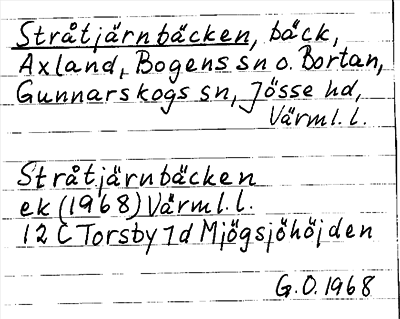 Stråtjärnbäcken, bäck,
Axland, Bogens sn o. Bortan,
Gunnarskogs sn, Jösse hd,
Värml. l.
Stråtjärnbäcken
ek (1968) Värml. l.
12 C Torsby 7d Mjögsjöhöjden
G.O. 1968